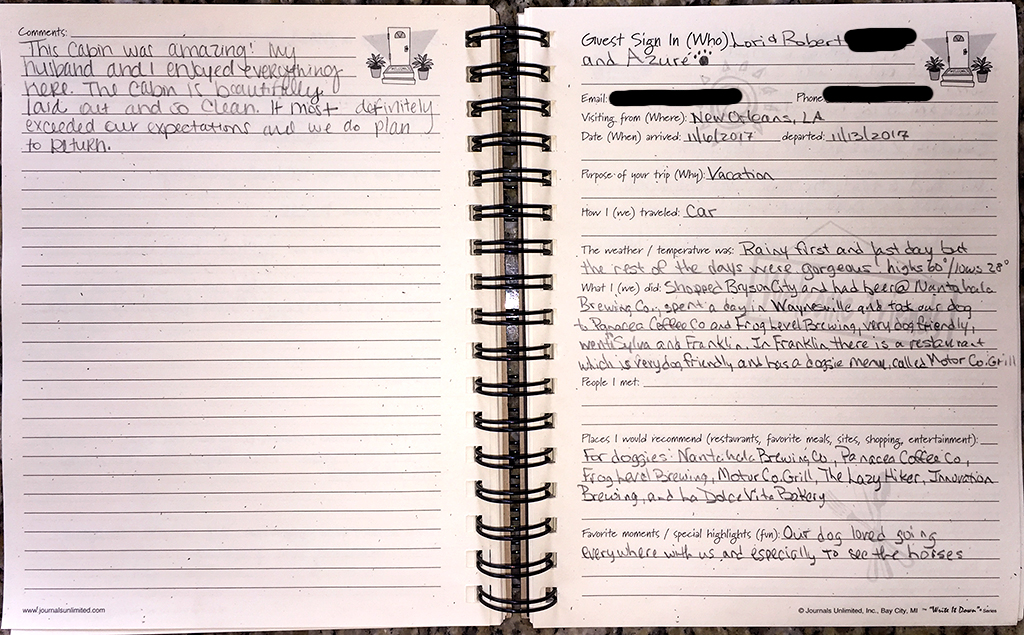 Comments:
This cabin was amazing! My
husband and I enjoyed everything
here. The cabin is beautifully
laid out and so clean. It most definitely
exceeded our expectations and we do plan
to return.
www.journalsunlimited.com
Guest Sign In (Who) Lori & Robert
and Azure
Email: Phone:
Visiting from (Where): New Orleans, LA
Date (When) arrived: 11/6/2017 departed: 11/13/2017
Purpose of your trip (Why): Vacation
How I (we) traveled: Car
The weather / temperature was: Rainy first and last day but
the rest of the days were gorgeous. highs 60°/lows 28°
What I (we) did: Shopped Bryson City and had beer @ Nantahala
Brewing Co., spent a day in Waynesville and took our dog
to Panacea Coffee Co and Frog Level Brewing, very dog friendly,
went to Sylva and Franklin. In Franklin there is a restaurant
which is very dog friendly and has a doggie menu, called Motor Co. Grill
People I met:
Places I would recommend (restaurants, favorite meals, sites, shopping, entertainment):
For doggies: Nantahala Brewing Co, Panacea Coffee Co,
Frog Level Brewing, Motor Co. Grill, The Lazy Hiker, Innovation
Brewing, and La Dolce Vita Bakery
Favorite moments / special highlights (fun): Our dog loved going
everywhere with us and especially to see the horses
© Journals Unlimited, Inc., Bay City, MI ~ "Write It Down"® Series